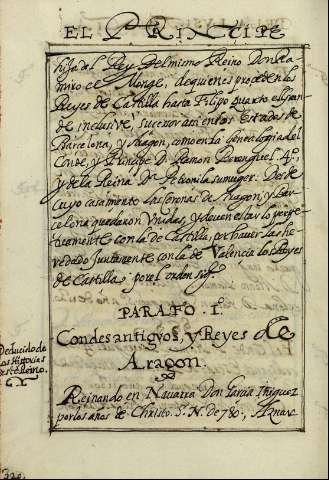 EL PRINCIPE
hija del Rey del mismo Reino Don Ra
miro el Monge, de quienes proceden los
Reyes de Castilla hasta Filipo quarto el gran
de inclusive, sucesores en los Estados de
Barcelona, y Aragon, como en la Genealogia del
Conde, y Principe D. Ramon Berenguel 4º,
y de la Reina Dª Petronila su muger: Desde
cuyo casamiento las coronas de Aragon, y Bar
celona quedaron Unidas, y deven estarlo perpe
tuamente con la de Castilla, por haver las he
redado juntamente con la de Valencia los Reyes
de Castilla por el orden sig.
PARAFO . 1º.
Condes antigvos, y Reyes de
Aragon.
Deducido de
las Historias
deste Reino.
Reinando en Navarra Don Garcia Iñiguez
por los años de Christo S. N. de 780, Aznar
320.